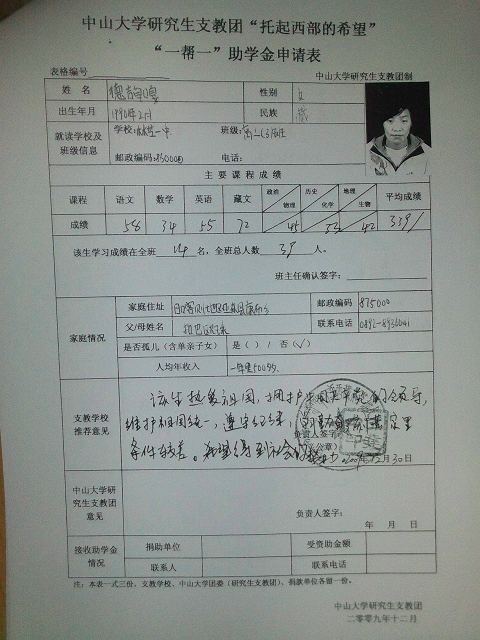 中山大学研究生支教团“托起西部的希望”
“一帮一”助学金申请表
表格编号 中山大学研究生支教团制
姓 名 性别 女
出生年月 1990年2月 民族 藏
就读学校及班级信息 学校: 一中 班级:
邮政编码:850000 电话:
主 要 课 程 成 绩
课程 语文 数学 英语 藏文 政治 物理 历史 化学 地理 生物 平均成绩
成绩 58 34 55 72 45 42
该生学习成绩在全班 14 名,全班总人数 39 人。
班主任确认签字:
家庭情况 家庭住址 邮政编码 875000
父/母姓名 联系电话 0892-8936041
是否孤儿(含单亲子女) 是( )/ 否(√)
人均年收入
支教学校推荐意见 该生热爱祖国,拥护中国共产党的领导,
维护祖国统一,遵守纪律, 家里
负责人签字:
条件较差。希望得到社会的 (公章)
2009年12月30日
中山大学研究生支教团意见 负责人签字:
年 月 日
接收助学金情况 捐助单位 受资助金额
联系人 联系电话
注:本表一式三份,支教学校、中山大学团委(研究生支教团)、捐款单位各留一份。
中山大学研究生支教团
二零零九年十二月